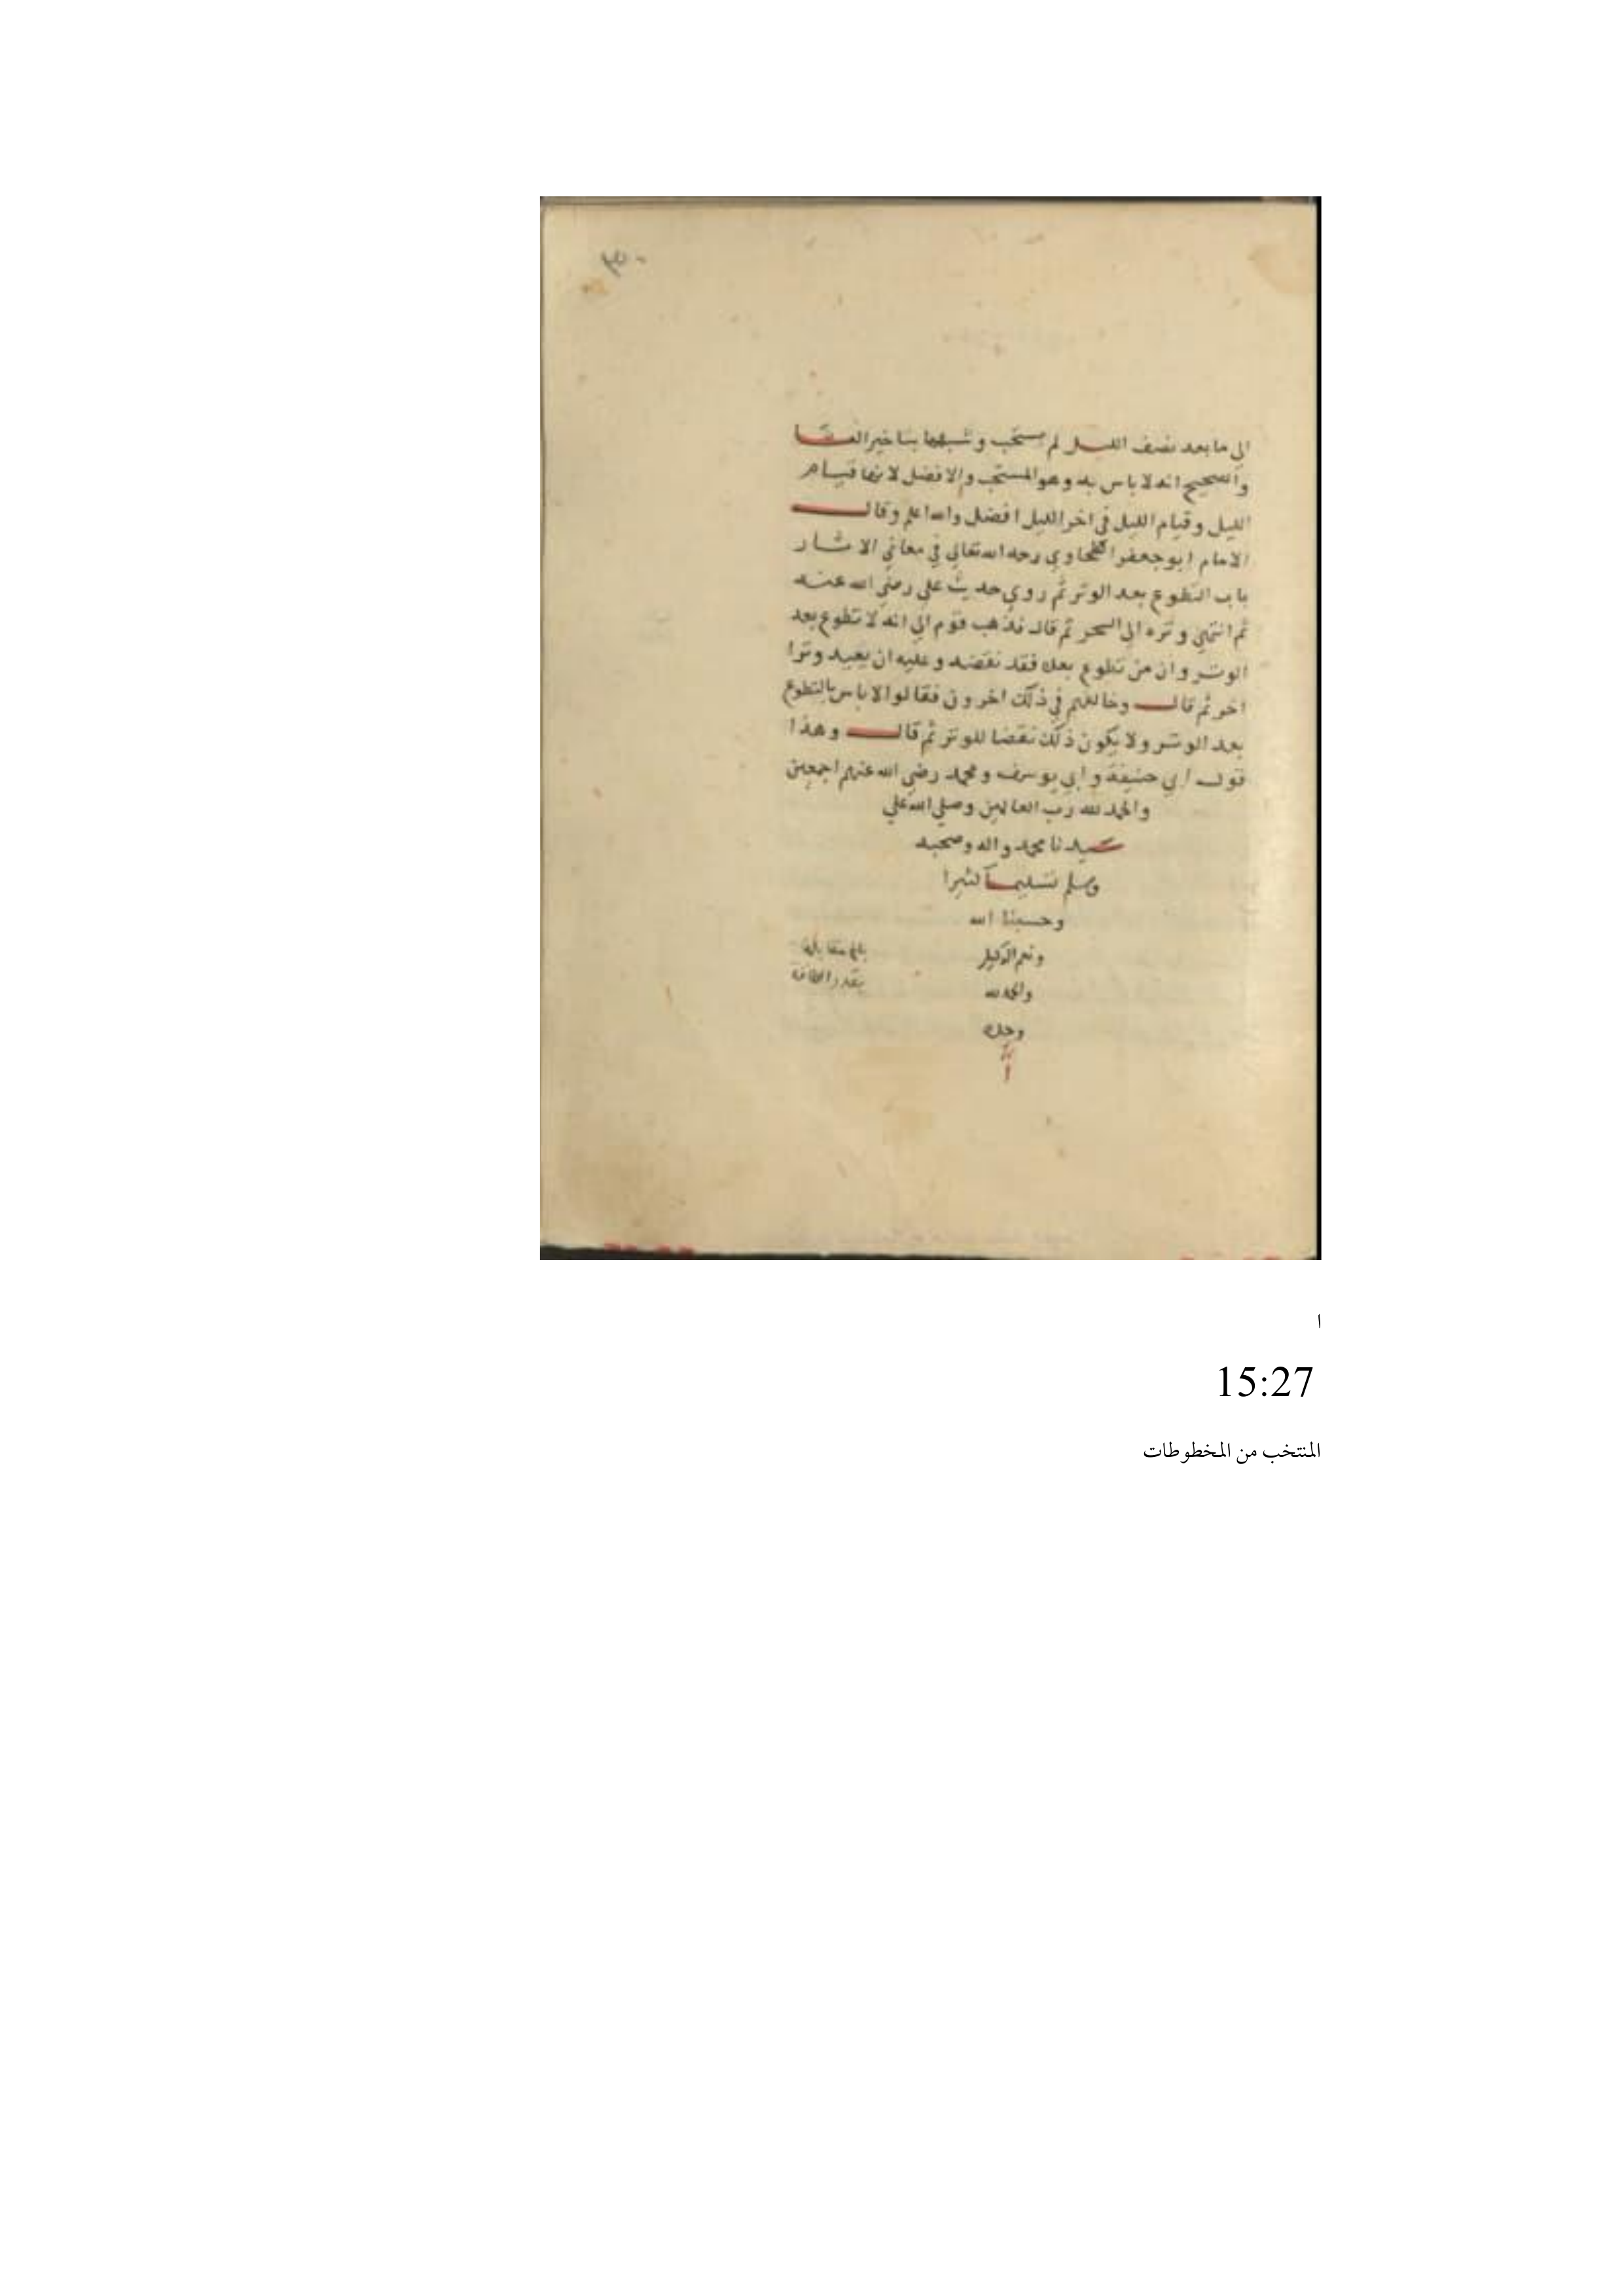 الي ما بعد نصف الليل لم يستحب وشبهها بتاخير العشا
والصحيح انه لا باس به وهو المستحب والافضل لانها قيام
الليل وقيام الليل في اخر الليل افضل والله اعلم وقال
الامام ابو جعفر الطحاوي رحمه الله تعالي في معاني الاثار
باب التطوع بعد الوتر ثم روي حديث علي رضي الله عنه
ثم انتهي وتره الي السحر ثم قال فذهب قوم الي انه لا تطوع بعد
الوتر وان من تطوع بعده فقد نقضه وعليه ان يعيد وترا
اخر ثم قال وخالفهم في ذلك اخرون فقالوا لا باس بالتطوع
بعد الوتر ولا يكون ذلك نقضا للوتر ثم قال وهذا
قول ابي حنيفة وابي يوسف ومحمد رضي الله عنهم اجمعين
والحمد لله رب العالمين وصلي الله علي
سيدنا محمد واله وصحبه
وسلم تسليما كثيرا
وحسبنا الله
ونعم الوكيل
والحمد لله
وحده
بلغ مقابلة
بقدر الطاقة
ا
15:27
المنتخب من المخطوطات